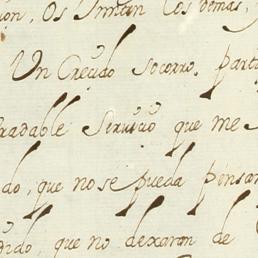 ion, Os Imitan los demas,
Un Crecido socorro, parti
gradable Servicio que me
do, que no se pueda pensar
dido, que no dexaran de